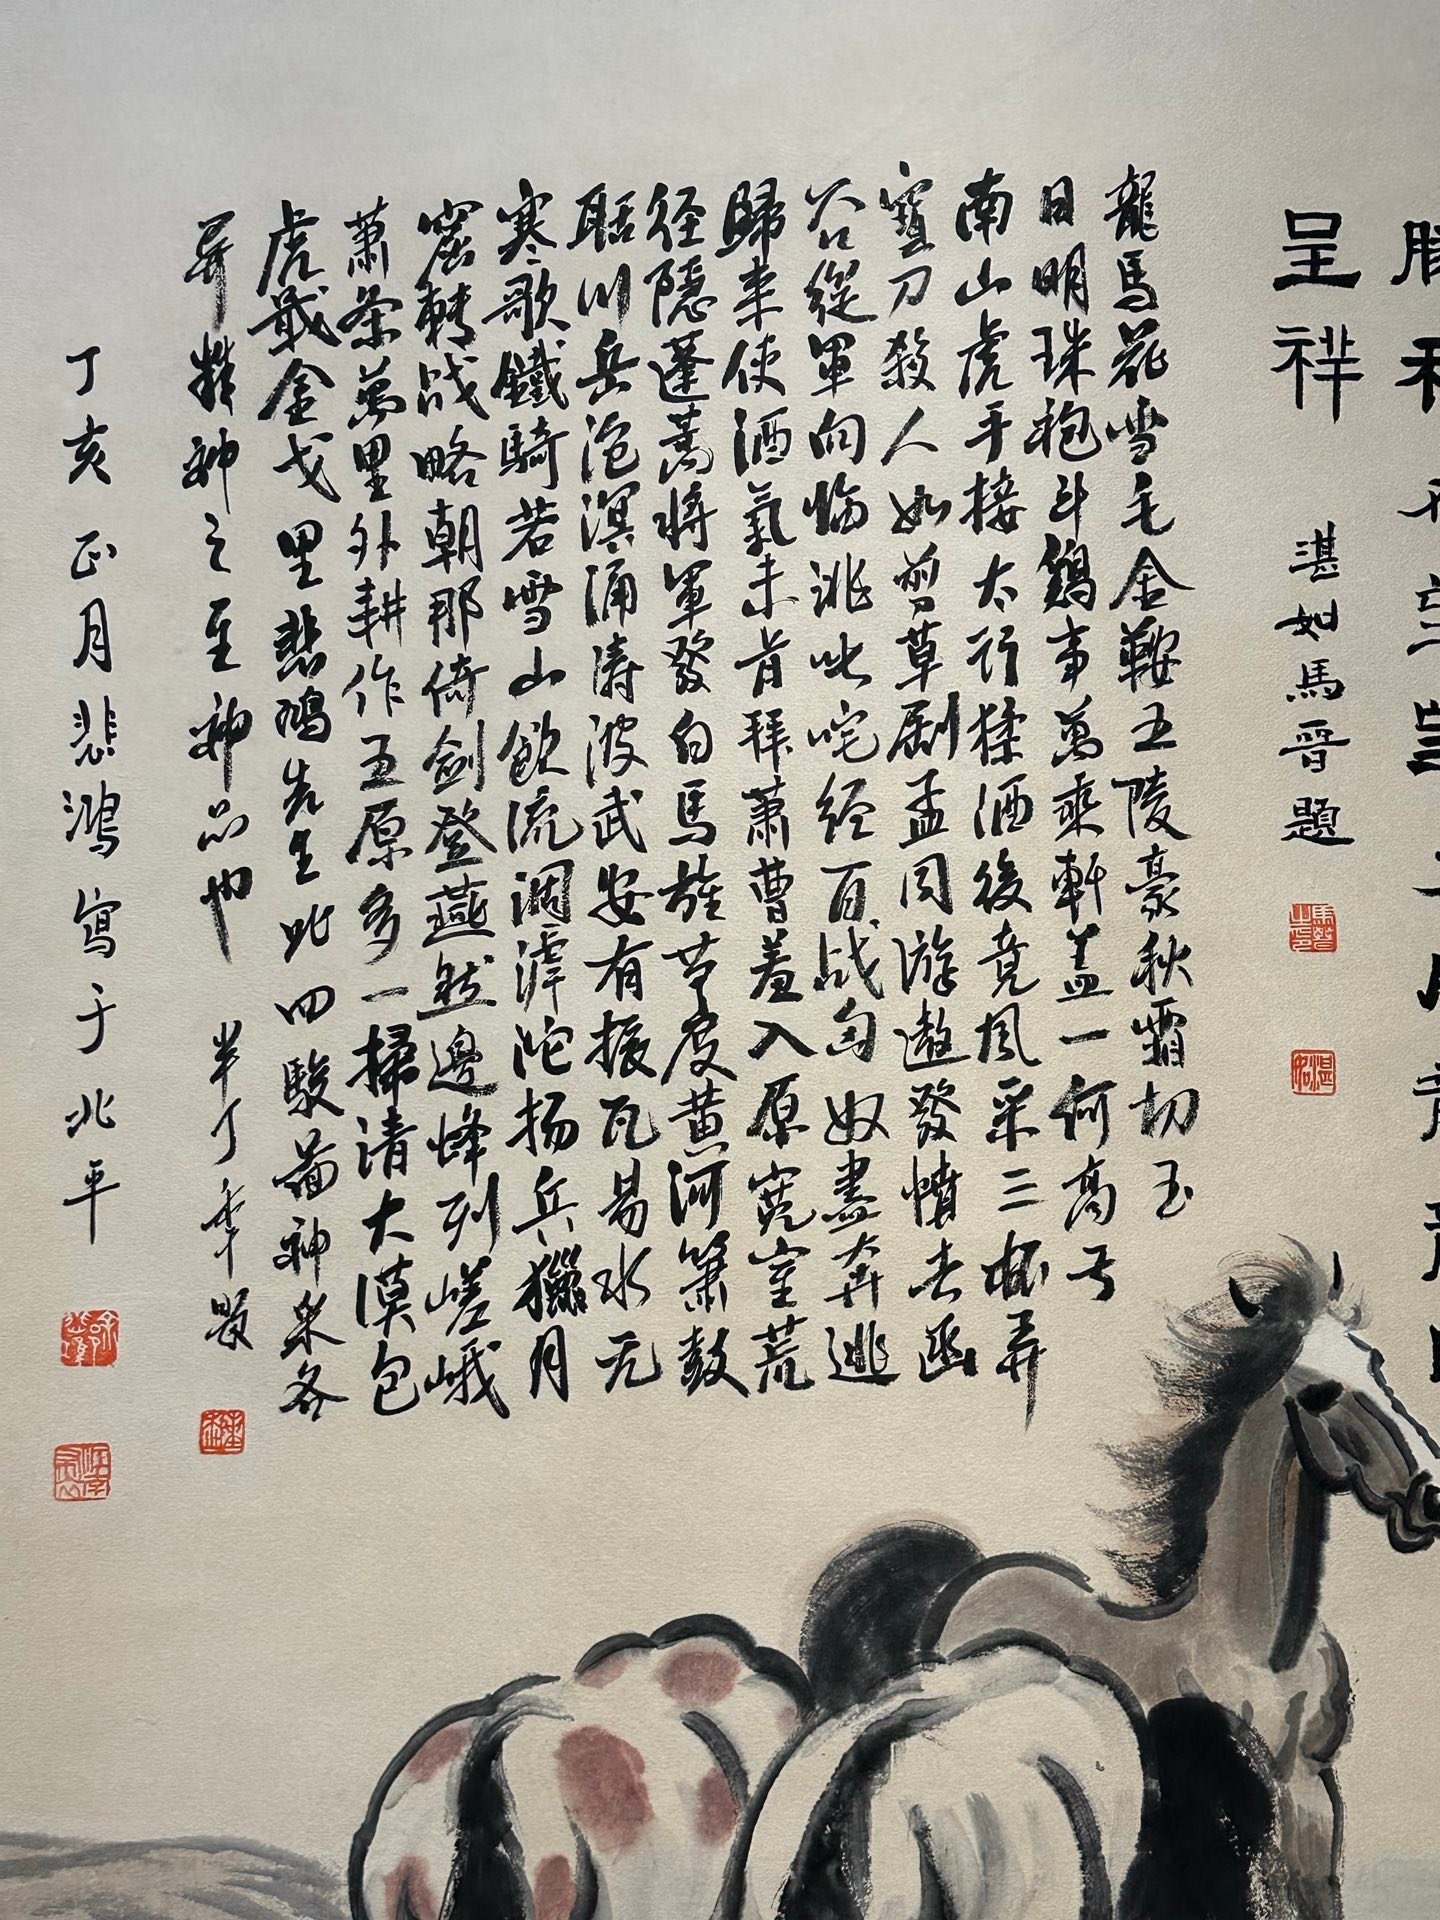 呈祥
湛如馬晉題
龍馬花雪毛金鞍五陵豪秋霜切玉
日明珠袍斗鷄事萬乘軒蓋一何高弓
南山虎手接太行猱酒後竞風采三杯弄
寶刀殺人如剪草劇孟同游遨發憤去函
谷從軍向臨洮叱咤经百战匈奴盡奔逃
歸来使酒氣未肯拜蕭曹羞入原宪室荒
径隱蓬蒿將軍發白馬旌节度黄河簫鼓
聒川岳沧溟涌涛波武安有振瓦易水无
寒歌鐵騎若雪山飲流涸滹沱扬兵獵月
窟轉战略朝那倚劍登燕然邊烽列嵯峨
蕭条萬里外耕作五原多一掃清大漠包
虎戢金戈 悲鴻先生此四駿圖神采各
异 神之至神品也 半丁年題
丁亥正月悲鴻寫于北平